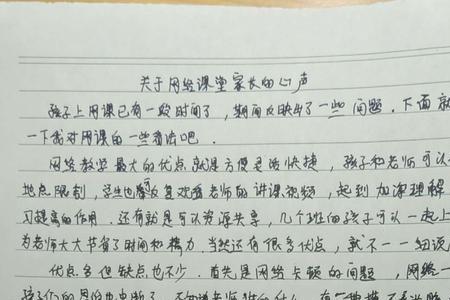 关于网络课堂家长的心声
孩子上网课已有一段时间了，期间反映出了一些问题．下面就
一下我对网课的一些看法吧．
网络教学最大的优点就是方便灵活快捷，孩子和老师可以
地点限制，学生也可反复观看老师的讲课视频，起到加深理解
习提高的作用．还有就是可以资源共享，几个班的孩子可以一起上
为老师大大节省了时间和精力．当然还有很多优点，就不一一细说
优点多但缺点也不少．首先是网络卡顿的问题，网络一
孩们的思路也中断了，不知道老师讲的什么，有一种摸不着